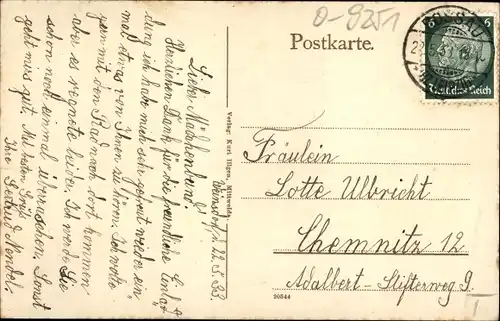 0-9251
Postkarte.
6 6
Deutsches Reich
Weinsdorf, 22.5.33
Liebe Mädchenbund!
Herzlichen Dank für die freundliche Einla-
dung ich habe mich sehr gefreut wieder ein
mal etwas von Ihnen zu hören. Ich wollte
gern mit dem Rad nach dort kommen
aber es regnete leider. Ich werde Sie
schon noch einmal übersehen. Sonst
geht mirs gut. Mit besten Gruß
Ihre Gertrud Mendel.
Verlag: Kurt Illgen, Mittweida
Fräulein
Lotte Ulbricht
Chemnitz 12
Adalbert-Stifterweg 9.
20544
T